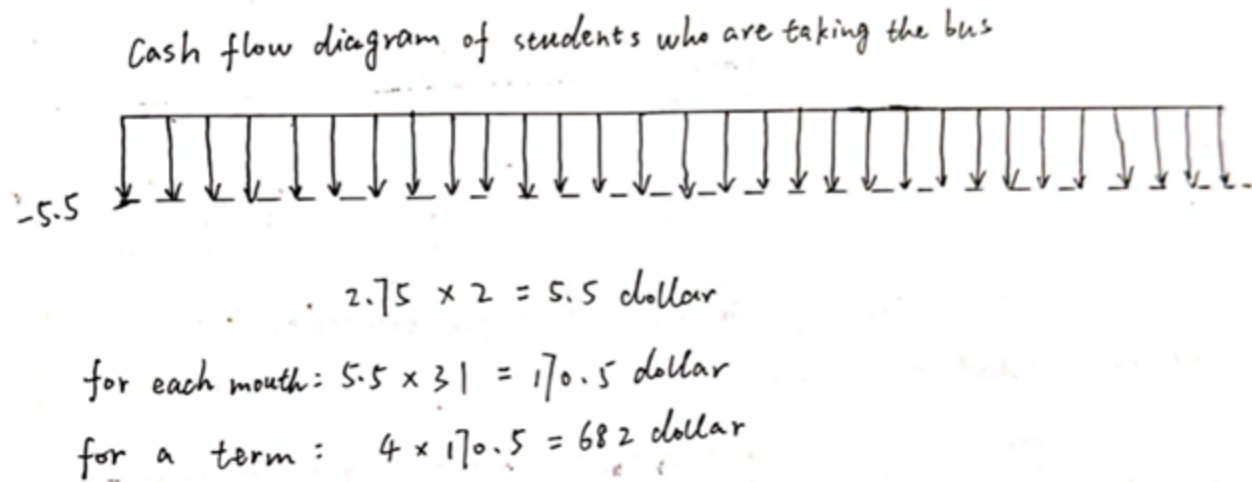 Cash flow diagram of students who are taking the bus
-5.5
2.75 × 2 = 5.5 dollar
for each mouth: 5.5 × 31 = 170.5 dollar
for a term: 4 × 170.5 = 682 dollar